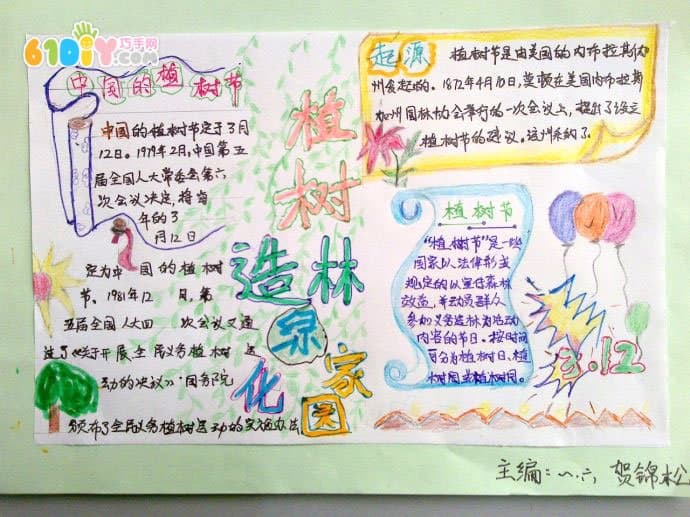 61DIY巧手网
.com
中国的植树节
中国的植树节定于3月
12日。1979年2月,中国第五
届全国人大常委会第六
次会议决定,将每
年的3
月12日
定为中国的植树
节、1981年12月,第
五届全国人大四次会议又通
过了《关于开展全民义务植树运
动的决议》国务院
颁布了全民义务植树运动的实施办法
植树
造林
绿化
家园
起源
植树节是由美国的内布拉斯加
州发起的。1872年4月10日,莫顿在美国内布拉斯
加州园林协会举行的一次会议上,提出了设立
植树节的建议。这州采纳了。
植树节
“植树节”是一些
国家以法律形式
规定的以宣传森林
效益,并动员群众
参加义务造林为活动
内容的节日。按时间
可分为植树日、植
树周或植树月。
3.12
主编:八.六 贺锦松